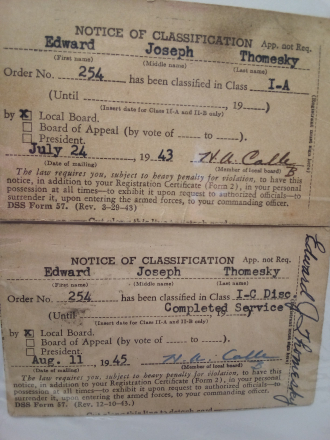 NOTICE OF CLASSIFICATION App. not Req.
Edward Joseph Thomesky
(First name) (Middle name) (Last name)
Order No. 254 has been classified in Class I-A
(Until , 19 )
(Insert date for Class II-A and II-B only)
by X Local Board.
Board of Appeal (by vote of to ).
President.
July 24, 1943 H. A. Calle
(Date of mailing) (Member of local board) B
The law requires you, subject to heavy penalty for violation, to have this
notice, in addition to your Registration Certificate (Form 2), in your personal
possession at all times—to exhibit it upon request to authorized officials—to
surrender it, upon entering the armed forces, to your commanding officer.
DSS Form 57. (Rev. 3-29-43)
NOTICE OF CLASSIFICATION App. not Req.
Edward Joseph Thomesky
(First name) (Middle name) (Last name)
Order No. 254 has been classified in Class I-C Disc.
(Until Completed Service
(Insert date for Class II-A and II-B only)
by X Local Board.
Board of Appeal (by vote of to ).
President.
Aug. 11, 1945 H. A. Calle
(Date of mailing) (Member of local board)
The law requires you, subject to heavy penalty for violation, to have this
notice, in addition to your Registration Certificate (Form 2), in your personal
possession at all times—to exhibit it upon request to authorized officials—to
surrender it, upon entering the armed forces, to your commanding officer.
DSS Form 57. (Rev. 12-10-43)
Edward J Thomesky